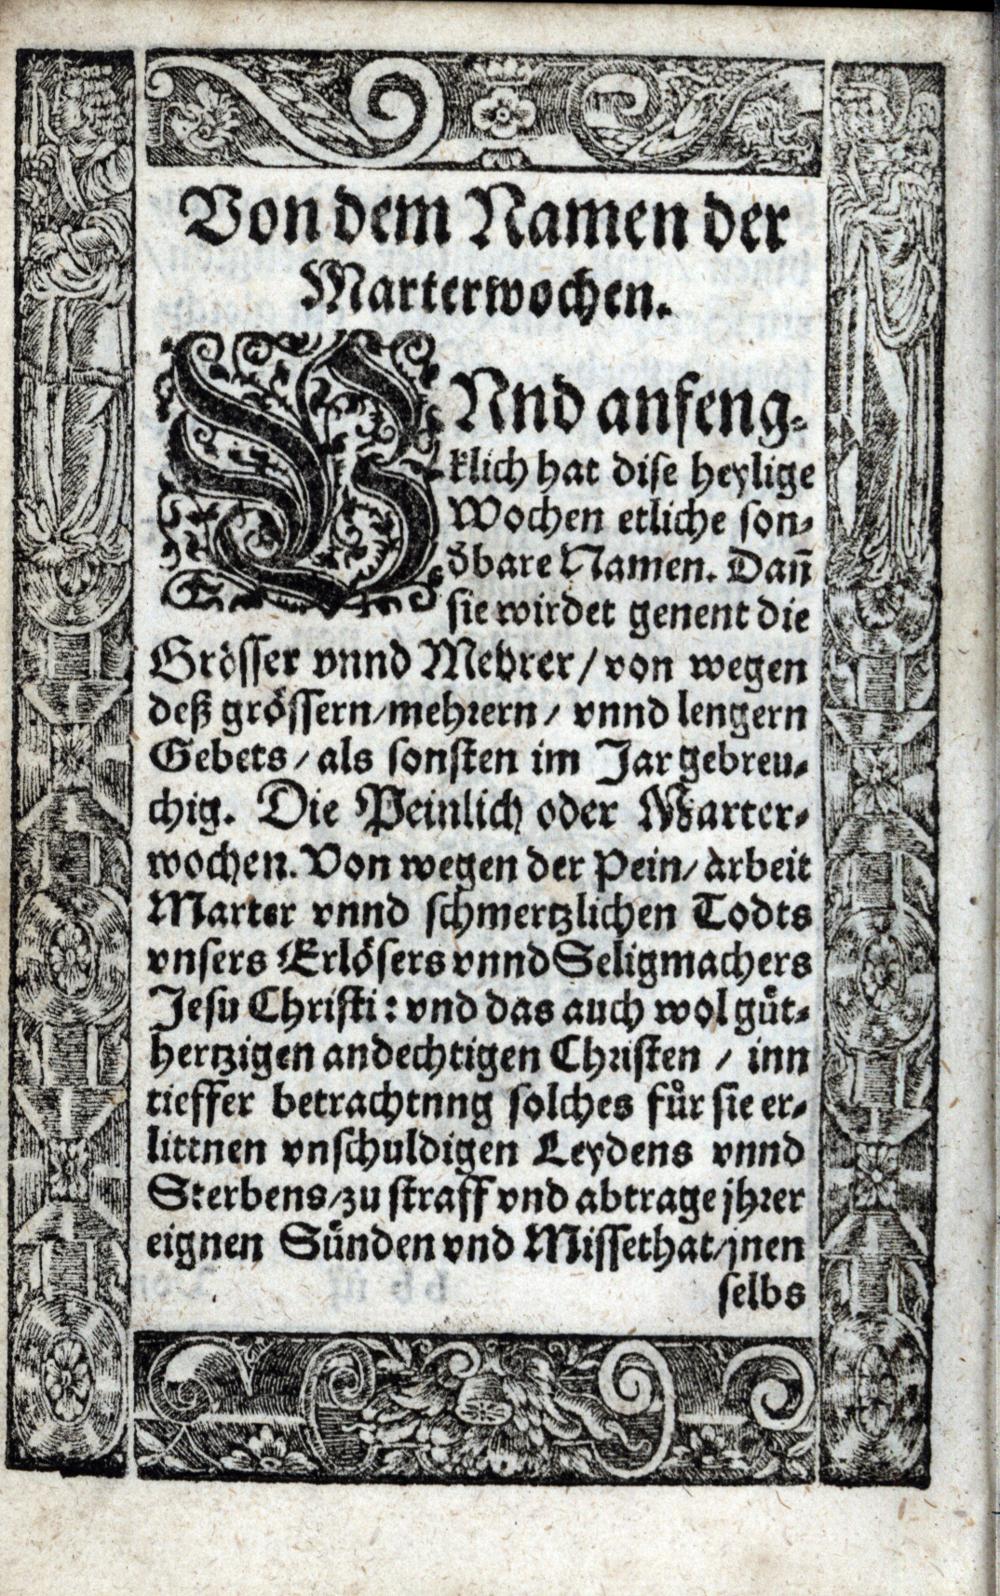 Von dem Namen der
Marterwochen.
VNnd anfeng-
klich hat dise heylige
Wochen etliche son-
dbare Namen. Dañ
sie wirdet genent die
Grösser vnnd Mehrer/ von wegen
deß grössern/ mehrern/ vnnd lengern
Gebets/ als sonsten im Jar gebreu-
chig. Die Peinlich oder Marter-
wochen. Von wegen der Pein/ arbeit
Marter vnnd schmertzlichen Todts
vnsers Erlösers vnnd Seligmachers
Jesu Christi: vnd das auch wol guͤt-
hertzigen andechtigen Christen / inn
tieffer betrachtnng solches fuͤr sie er-
littnen vnschuldigen Leydens vnnd
Sterbens/ zu straff vnd abtrage jhrer
eignen Suͤnden vnd Missethat/ jnen
selbs